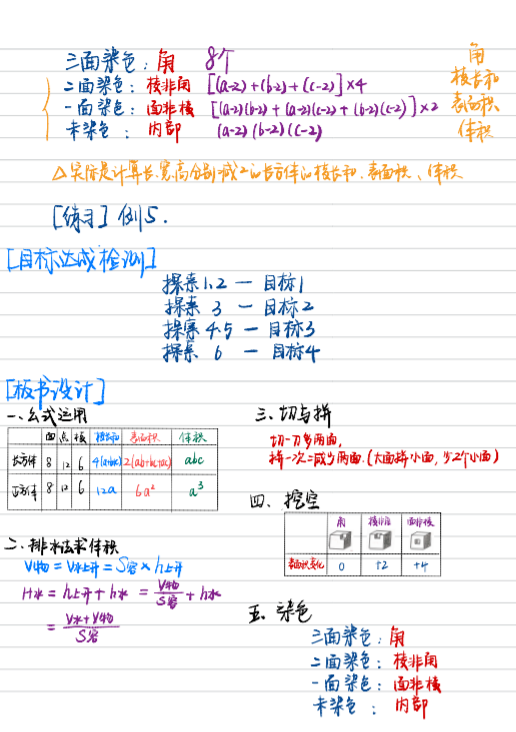 三面染色：角 8个
二面染色：棱非角 [(a-2)+(b-2)+(c-2)]×4
一面染色：面非棱 [(a-2)(b-2)+(a-2)(c-2)+(b-2)(c-2)]×2
未染色：内部 (a-2)(b-2)(c-2)
角
棱长和
表面积
体积
△实际是计算长、宽、高分别减2的长方体的棱长和、表面积、体积
[练习] 例5.
[目标达成检测]
探索1.2 — 目标1
探索 3 — 目标2
探索 4.5 — 目标3
探索 6 — 目标4
[板书设计]
一、公式运用
面 点 棱 棱长和 表面积 体积
长方体 8 12 6 4(a+b+c) 2(ab+bc+ac) abc
正方体 8 12 6 12a 6a² a³
二、排水法求体积
V物=V水上升=S容×h上升
H水=h上升+h水=V物/S容+h水
=V水+V物/S容
三、切与拼
切一刀多两面，
拼一次=减少两面.(大面拼小面，少2个小面)
四、挖空
角 棱非角 面非棱
表面积变化 0 +2 +4
五、染色
三面染色：角
二面染色：棱非角
一面染色：面非棱
未染色：内部